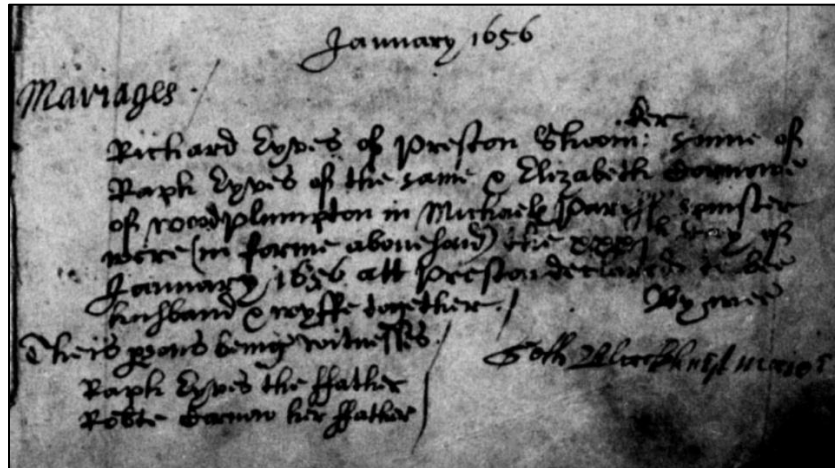 January 1656
Mariages
Richard Eyves of Preston sonne of
Raph Eyves of the same & Elizabeth
of woodplumpton in Michaels parish spinster
were (in forme abovesaid) the xxxjth day of
January 1656 att Preston declared to bee
husband & wyffe together. By mee
Theis psons being witnesses.
maior
Raph Eyves the ffather
Robte her ffather